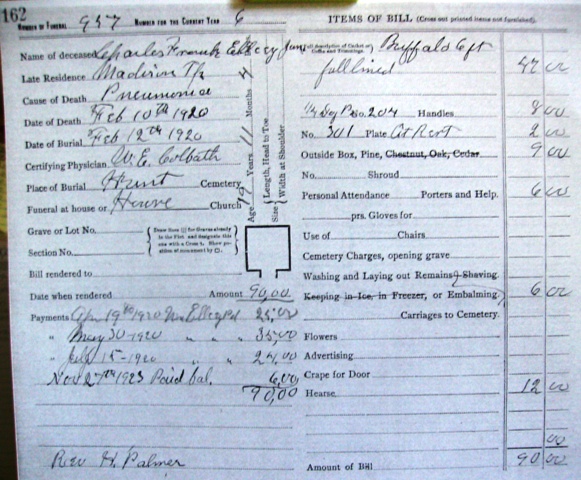 162
NUMBER OF FUNERAL 957 NUMBER FOR THE CURRENT YEAR 6
Name of deceased Charles Frank Ellery
Late Residence Madison Tp
Cause of Death Pneumonia
Date of Death Feb 10th 1920
Date of Burial Feb 12th 1920
Certifying Physician W.E. Colbath
Place of Burial Hunt Cemetery
Funeral at house or House Church
Grave or Lot No.
Section No.
{ Draw lines for Graves already in the Plot and designate this one with a Cross. Show position of monument by }
Age Years 11 Months 4
Size { Length, Head to Toe
Width at Shoulder
Bill rendered to
Date when rendered Amount 90.00
Payments Apr 19th 1920 Wm Ellery Pd 25.00
" May 30-1920 " " " 35.00
" July 15-1920 " " 24.00
Nov 27th 1923 Paid bal. 6.00
90,00
Rev H. Palmer
ITEMS OF BILL (Cross out printed items not furnished).
Full description of Casket or Coffin and Trimmings. } Buffalo 6 ft
full lined 47 00
No. 204 Handles 8 00
No. 301 Plate At Rest 2 00
Outside Box, Pine, Chestnut, Oak, Cedar 9 00
No. Shroud
Personal Attendance Porters and Help. 6 00
prs. Gloves for
Use of Chairs
Cemetery Charges, opening grave
Washing and Laying out Remains, Shaving
Keeping in Ice, in Freezer, or Embalming. 6 00
Carriages to Cemetery.
Flowers
Advertising
Crape for Door
Hearse 12 00
00
Amount of Bill 90 00